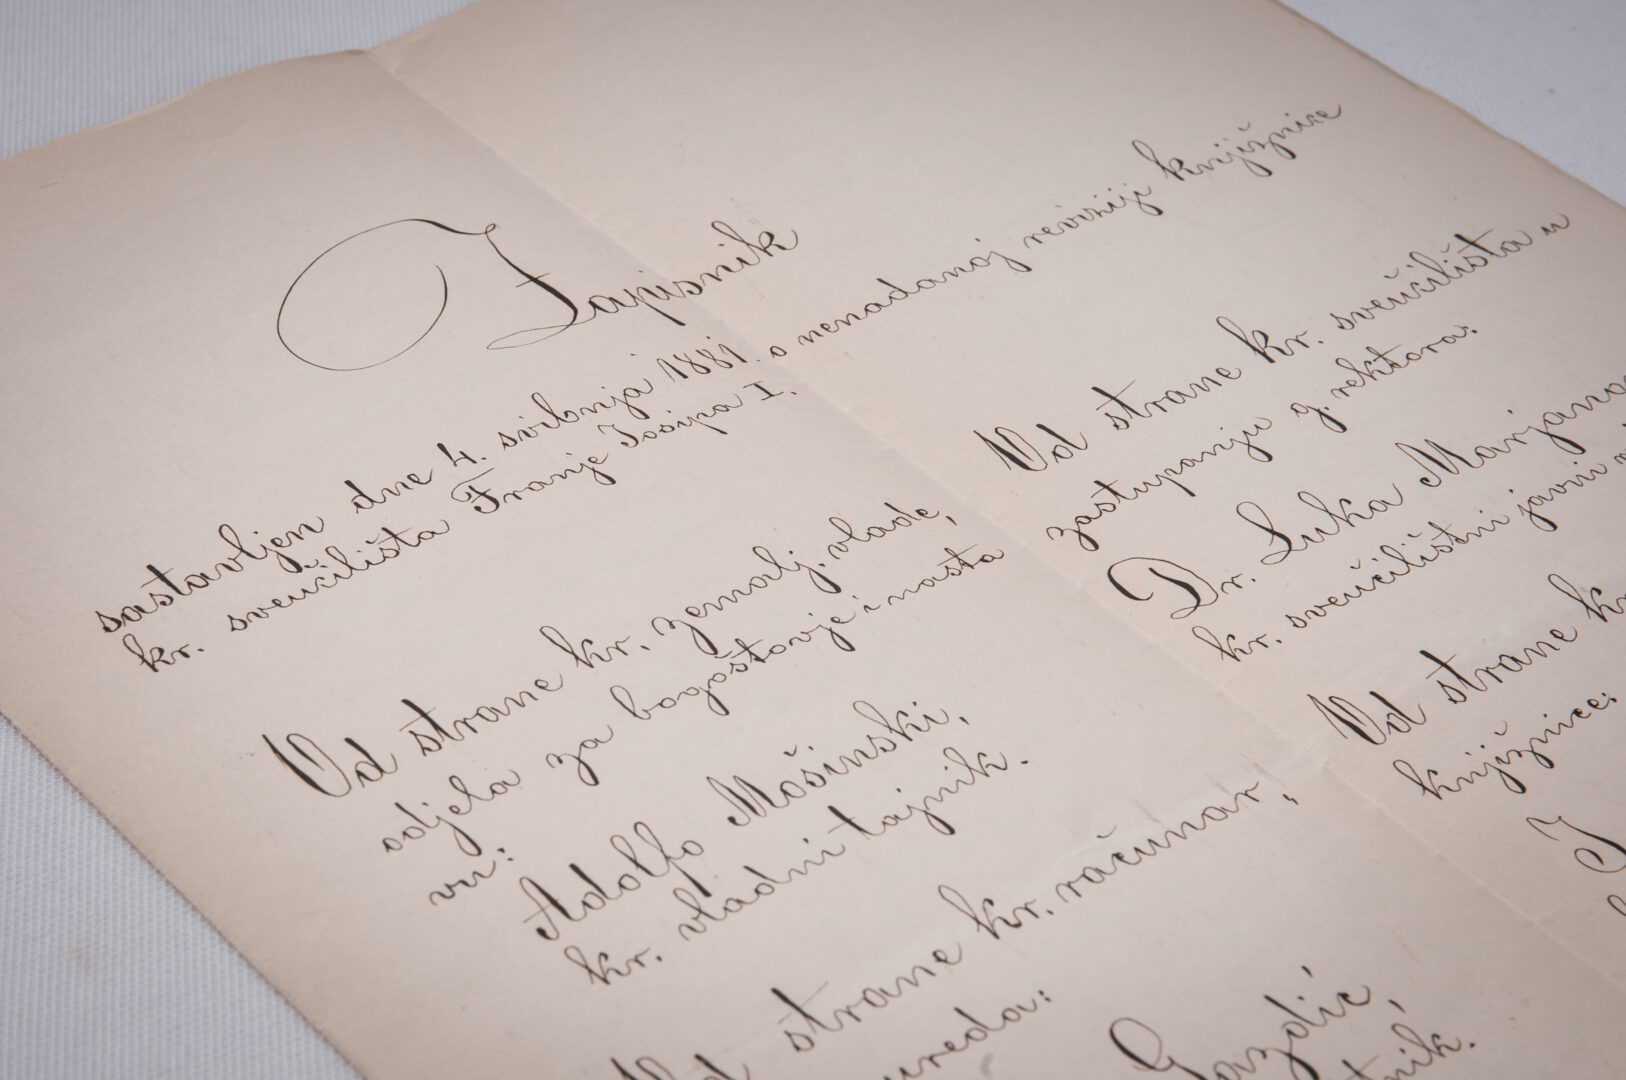 Zapisnik
sastavljen dne 4. svibnja 1881. o nenadanoj reviziji knjižnice
kr. sveučilišta Franje Josipa I.
Od strane kr. zemalj. vlade,
odjela za bogoštovje i nasta
vu:
Adolfo Mošinski,
kr. vladni tajnik.
Od strane kr. računar,
ureda:
Gazdić,
Od strane kr. sveučilišta u
zastupanju g. rektora:
Dr. Luka Marjano
kr. sveučilištni javni
Od strane k
knjižnice: